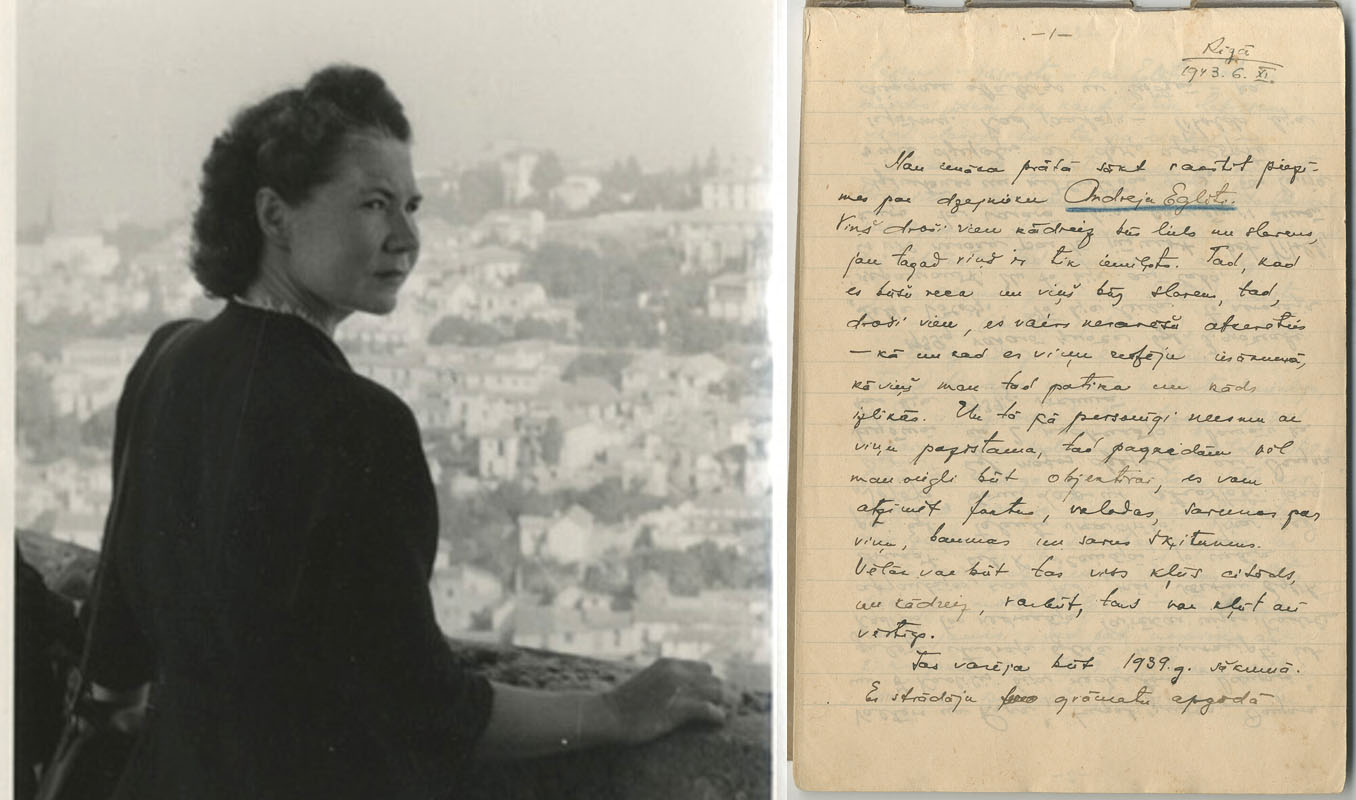 -1-
Rīgā
1943. 6. XI.
Man ienāca prātā sākt rakstīt piezī-
mes par dzejnieku Andreju Eglīti.
Viņš droši vien kādreiz būs liels un slavens,
jau tagad viņš ir tik iemīļots. Tad, kad
es būšu veca un viņš būs slavens, tad,
droši vien, es vairs nevarēšu atcerēties
– kā un kad es viņu redzēju iesākumā,
kā viņš man tad patika un kāds
izlikās. Un tā kā personīgi neesmu ar
viņu pazīstama, tad pagaidām vēl
man viegli būt objektīvai, es varu
atzīmēt faktus, valodas, sarunas par
viņu, baumas un savus šķitumus.
Vēlāk var būt tas viss kļūs citāds,
un kādreiz, varbūt, tas var kļūt arī
vērtīgs.
Tas varēja būt 1939.g. sākumā.
Es strādāju grāmatu apgādā